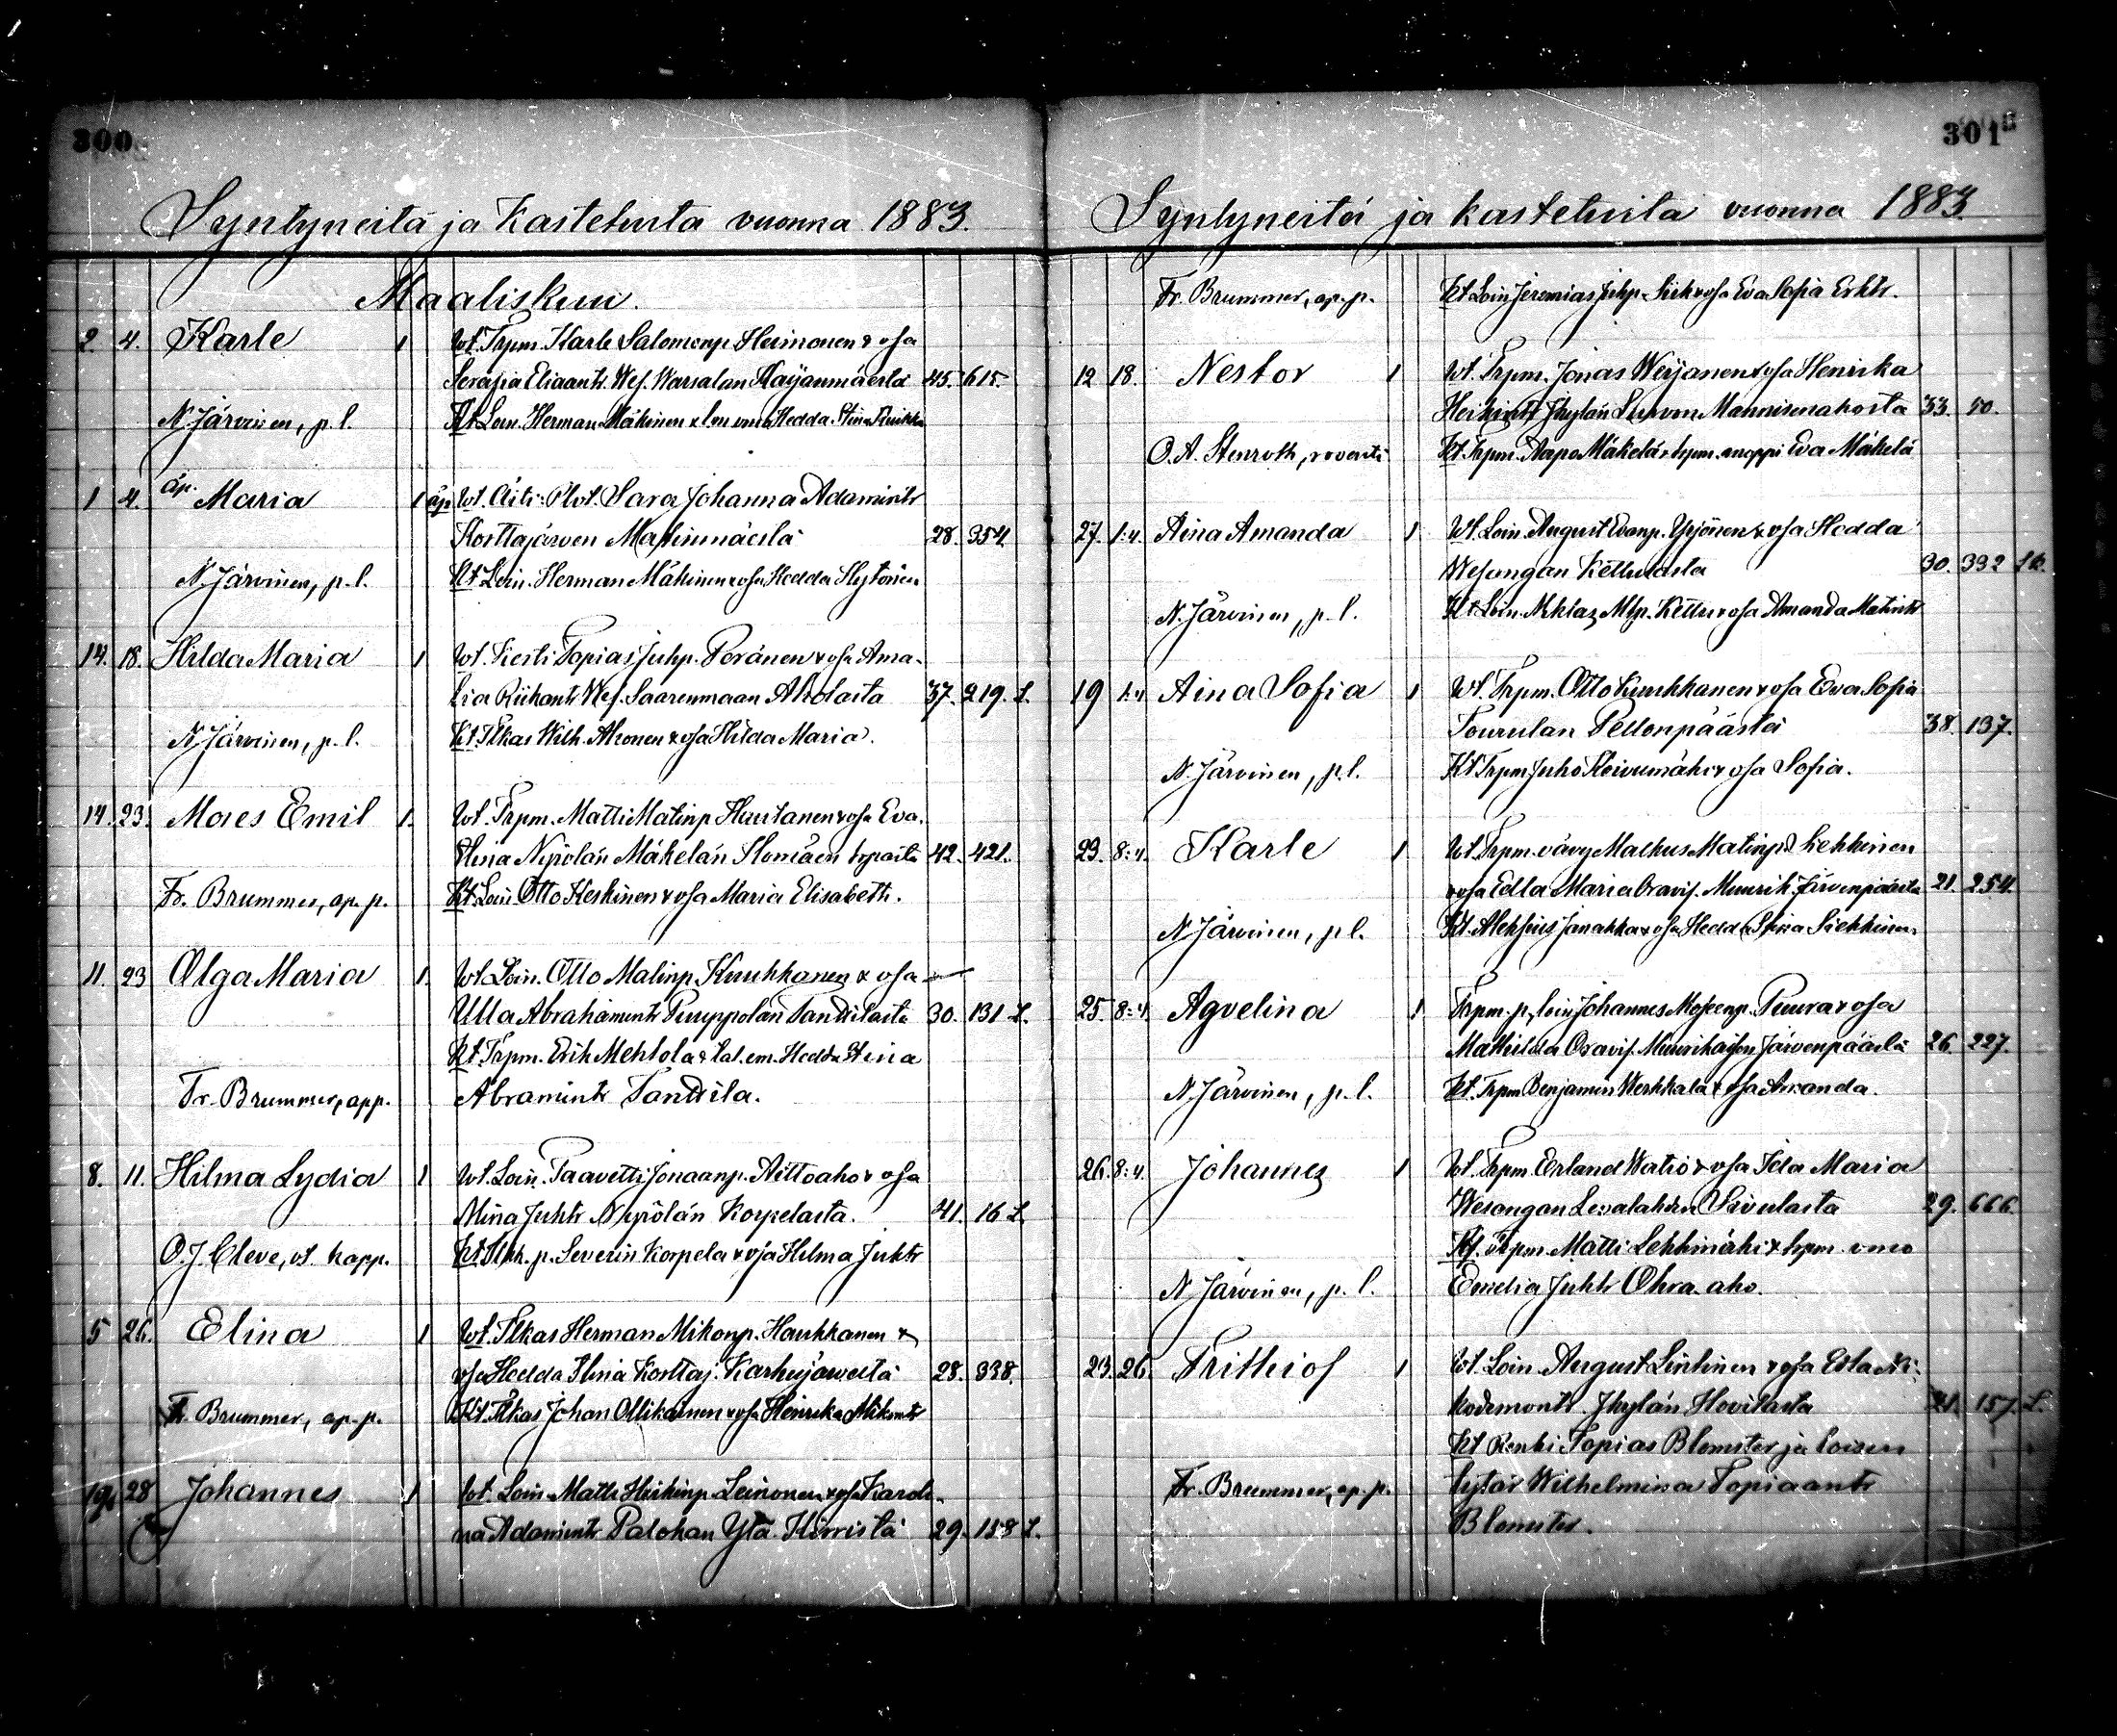 300
Syntyneitä ja Kastetuita vuonna 1883.
Maaliskuu.
2. 4. Karle 1 Wt. Trpm. Karle Salomonp. Heimonen & vsa
Serafia Eliaantr. Wes. Warsalan Naijanmäeslä 45. 615.
N. Järvinen, p. l. Kt. Loin. Herman Mäkinen & Hedda Stina
1 4. äp. Maria 1 äp Wt. Äiti: Plvt. Sara Johanna Adamintr
Korttajärven 28. 354
N. Järvinen, p. l. Kt. Loin. Herman Mäkinen & vsa Hedda Hytönen
14. 18. Hilda Maria 1 Wt. Kesti Topias Juhp. Poränen & vsa Ama-
lia Riikantr. Wes. Saarenmaan Aholasta 37. 219. L.
N. Järvinen, p. l. Kt. Tlkas Wilh. Ahonen & vsa Hilda Maria.
14. 23. Moses Emil 1. Wt. Trpm. Matti Matinp. Hautanen & vsa Eva
Stina Nyrölän Mäkelän 42. 421.
Fr. Brummer, ap. p. Kt. Loin. Otto Keskinen & vsa Maria Elisabeth.
11. 23 Olga Maria 1. Wt. Loin. Otto Matinp. Kuukkanen & vsa
Ulla Abrahamintr. Puuppolan Tandilasta 30. 131 L.
Kt. Trpm. Erik Mehtola & tal. em. Hedda Stina
Fr. Brummer, app. Abramintr Tandila.
8. 11. Hilma Lydia 1 Wt. Loin. Taavetti Jonaanp. Aittoaho & vsa
Mina Juhtr Nyrölän Korpelasta. 41. 16 L
O. J. Cleve, vt. kapp. Kt. Tlkk. p. Severin Korpela & vsa Hilma Juhtr
5 26. Elina 1 Wt. Tlkas Herman Mikonp. Hauhkanen &
vsa Hedda Stina Korttaj. Karhujärveltä 28. 338.
Fr. Brummer, ap. p. Kt. Tlkas Johan Ollikainen & vsa Henrika Mikontr
28 Johannes 1 Wt. Loin. Matti Heikinp. Leinonen & vsa Karoli-
na Adamintr Palokan Ylä Kirristä 29. 158 L.
301
Syntyneitä ja kastetuita vuonna 1883.
Fr. Brummer, ap. p. Kt. Loin. Jeremias Juhp. & vsa Eva Sofia Erktr.
12 18. Nestor 1 Wt. Trpm. Jonas Werjanen & vsa Henrika
Heikintr Jkylän Survon Mannisenahosta 33. 50.
O. A. Stenroth, rovasti Kt. Trpm. Aapo Mäkelä & trpm. anoppi Eva Mäkelä
27. 1:4. Aina Amanda 1 Wt. Loin. August Evanp. Yrjönen & vsa Hedda
Wesangan Kettulasta 30. 332
N. Järvinen, p. l. Kt. Loin. Niklas Mtp. Kettu & vsa Amanda Matintr
19 1:4 Aina Sofia 1 Wt. Trpm. Otto Kuukkanen & vsa Eva Sofia
Tourulan Pellonpäästä 38. 137.
N. Järvinen, p. l. Kt Trpm Juho Koivumäki & vsa Sofia.
23. 8:4. Karle 1 Wt. Trpm. vävy Malkus Matinp. Lehkinen
& vsa Edla Maria Oravis. Muurik. Järvenpäästä 21. 254
N. Järvinen, p. l. Kt. Aleksius Janakka & vsa Hedda Stina Siekkinen.
25. 8:4. Agvelina 1 Trpm. p. loin. Johannes Mosesp. Puura & vsa
Mathilda Oravis. Muurikaisen Järvenpäästä 26. 227.
N. Järvinen, p. l. Kt. Trpm Benjamin Werkkala & vsa Amanda.
26. 8:4. Johannes 1 Wt. Trpm. Erland Watio & vsa Ida Maria
Wesangan Sivulasta 29. 666.
Kt. Trpm. Matti Lehkimäki & trpm. vmo
N. Järvinen, p. l. Emelia Juhtr Ohra-aho.
23. 26. Frithiof 1 Wt. Loin. August Lintinen & vsa Esta Ni-
kodemontr. Jkylän Hovilasta 21. 157. L.
Kt Renki Topias Blomster ja loisen
Fr. Brummer, ap. p. tytär Wilhelmina Topiaantr
Blomster.